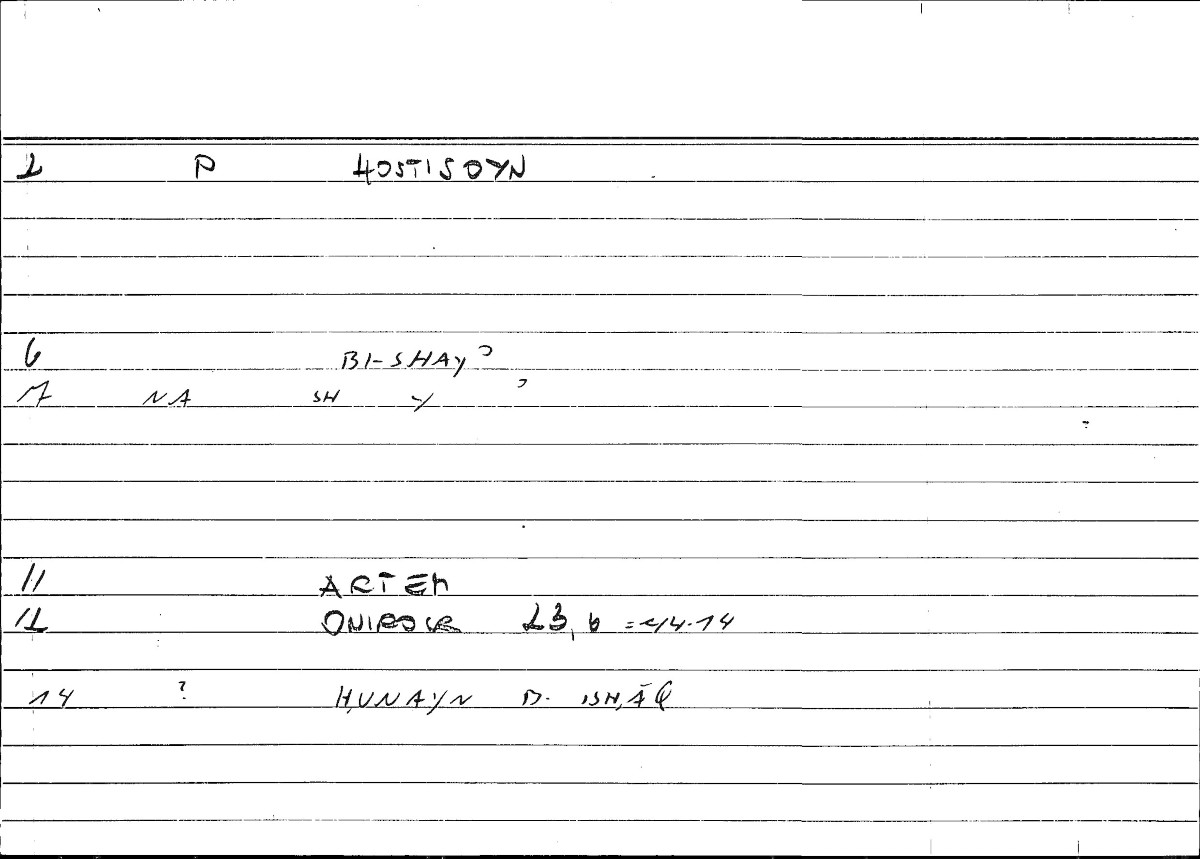 2 P HOSTISOYN
6 BI-SHAY?
7 NA SH Y ?
11 ARTEM
12 ONIROCR 23, 6 = 44.14
14 ? ḤUNAYN B. ISḤĀQ